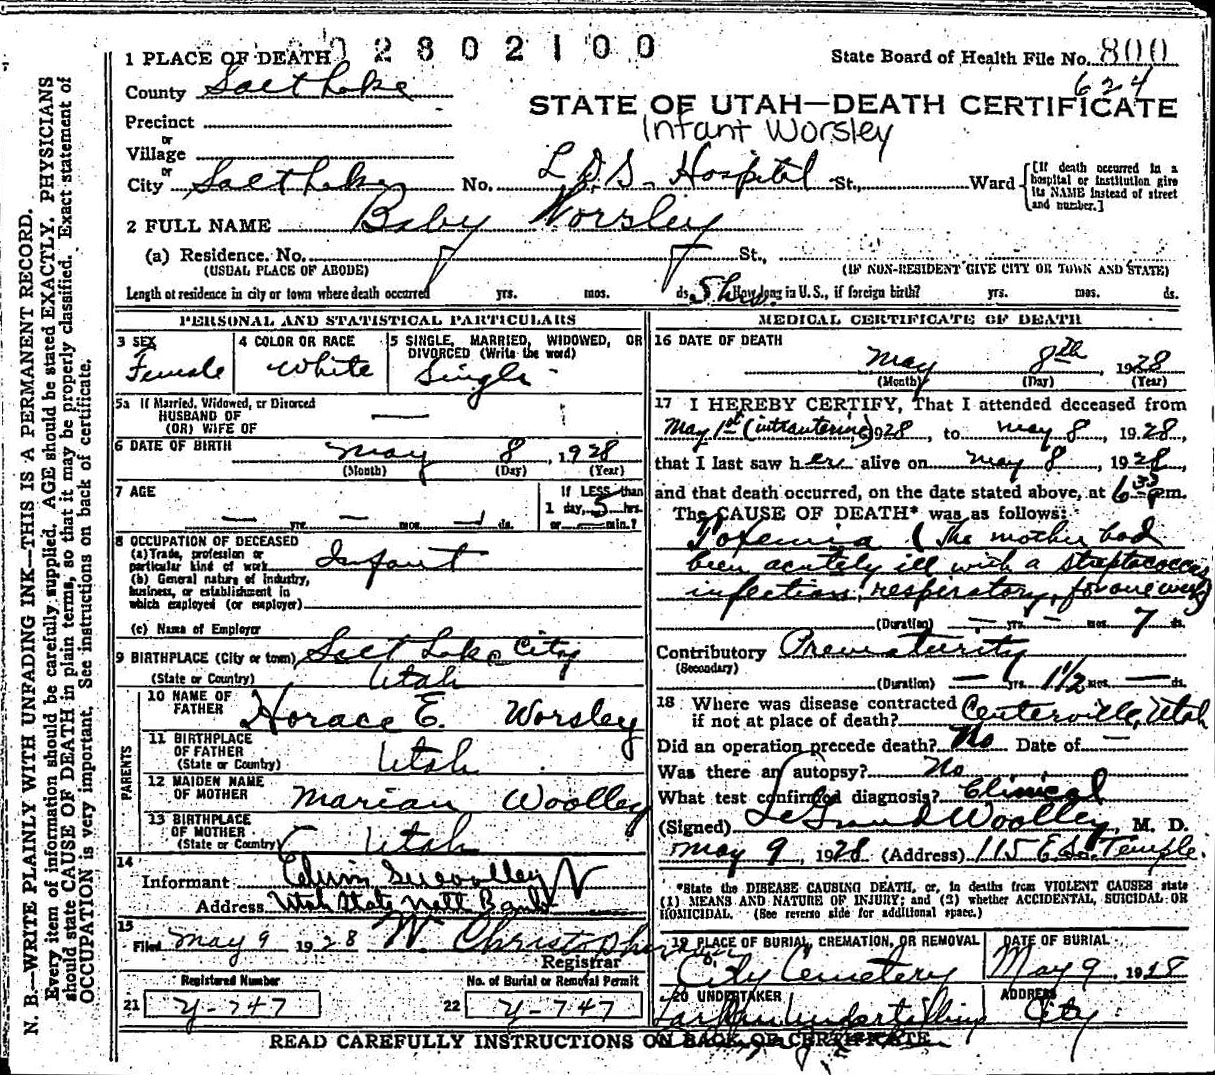 02802100
1 PLACE OF DEATH
State Board of Health File No. 800
624
County Salt Lake
STATE OF UTAH—DEATH CERTIFICATE
Infant Worsley
Precinct
or
Village
or
City Salt Lake No. L.D.S. Hospital St., Ward
[If death occurred in a hospital or institution give its NAME instead of street and number.]
2 FULL NAME Baby Worsley
(a) Residence. No. St.,
(USUAL PLACE OF ABODE) (IF NON-RESIDENT GIVE CITY OR TOWN AND STATE)
Length of residence in city or town where death occurred yrs. mos. ds. 5 hrs. How long in U.S., if foreign birth? yrs. mos. ds.
PERSONAL AND STATISTICAL PARTICULARS
3 SEX Female
4 COLOR OR RACE White
5 SINGLE, MARRIED, WIDOWED, OR DIVORCED (Write the word) Single
5a If Married, Widowed, or Divorced
HUSBAND OF —
(OR) WIFE OF
6 DATE OF BIRTH May 8, 1928
(Month) (Day) (Year)
7 AGE — yrs. — mos. — ds.
If LESS than
1 day, 5 hrs.
or — min.?
8 OCCUPATION OF DECEASED
(a) Trade, profession or particular kind of work Infant
(b) General nature of industry, business, or establishment in which employed (or employer)
(c) Name of Employer
9 BIRTHPLACE (City or town) Salt Lake City
(State or Country) Utah
PARENTS
10 NAME OF FATHER Horace E. Worsley
11 BIRTHPLACE OF FATHER (State or Country) Utah
12 MAIDEN NAME OF MOTHER Marian Woolley
13 BIRTHPLACE OF MOTHER (State or Country) Utah
14
Informant Woolley
Address Utah State Natl Bank
15
Filed May 9 1928 W. Christopherson
Registrar
Registered Number
21 Y-747
No. of Burial or Removal Permit
22 Y-747
MEDICAL CERTIFICATE OF DEATH
16 DATE OF DEATH
May 8th, 1928
(Month) (Day) (Year)
17 I HEREBY CERTIFY, That I attended deceased from
May 1st (intrauterine) 1928, to May 8, 1928,
that I last saw her alive on May 8, 1928
and that death occurred, on the date stated above, at 6 35 p.m.
The CAUSE OF DEATH* was as follows:
Toxemia (The mother had
been acutely ill with a streptococcus
infection, respiratory, for one week)
(Duration) — yrs. — mos. 7 ds.
Contributory Prematurity
(Secondary)
(Duration) — yrs. 1½ mos. — ds.
18 Where was disease contracted
if not at place of death? Centerville, Utah
Did an operation precede death? No Date of —
Was there an autopsy? No
What test confirmed diagnosis? Clinical
(Signed) LeGrand Woolley, M. D.
May 9, 1928 (Address) 115 E So. Temple.
*State the DISEASE CAUSING DEATH, or, in deaths from VIOLENT CAUSES state
(1) MEANS AND NATURE OF INJURY; and (2) whether ACCIDENTAL, SUICIDAL OR
HOMICIDAL. (See reverse side for additional space.)
19 PLACE OF BURIAL, CREMATION, OR REMOVAL City Cemetery
DATE OF BURIAL May 9, 1928
20 UNDERTAKER
ADDRESS City
READ CAREFULLY INSTRUCTIONS ON BACK OF CERTIFICATE
N. B.—WRITE PLAINLY WITH UNFADING INK—THIS IS A PERMANENT RECORD.
Every item of information should be carefully supplied. AGE should be stated EXACTLY. PHYSICIANS
should state CAUSE OF DEATH in plain terms, so that it may be properly classified. Exact statement of
OCCUPATION is very important. See instructions on back of certificate.